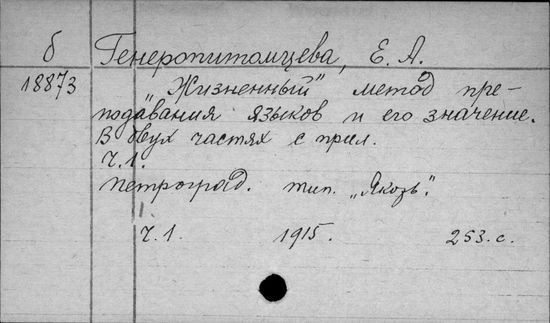 б Генеропитомцева, Е. А.
18873 „Жизненный" метод пре-
подавания языков и его значение.
В двух частях с прил.
Ч.1.
Петроград. тип. „Якорь".
Ч.1. 1915. 253.с.